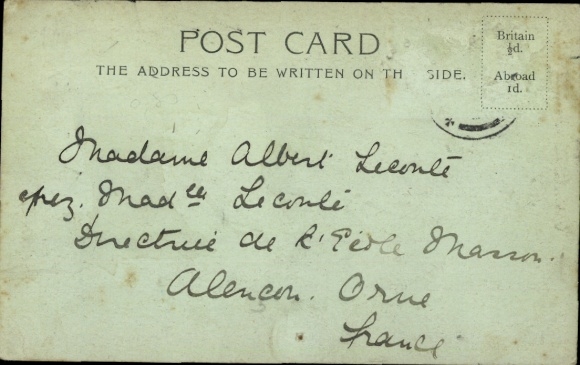 POST CARD
THE ADDRESS TO BE WRITTEN ON TH SIDE.
Britain
½d.
Abroad
1d.
Madame Albert Leconte
chez. Madelle Leconte
Directrice de l'Ecole Masson.
Alencon. Orne
France